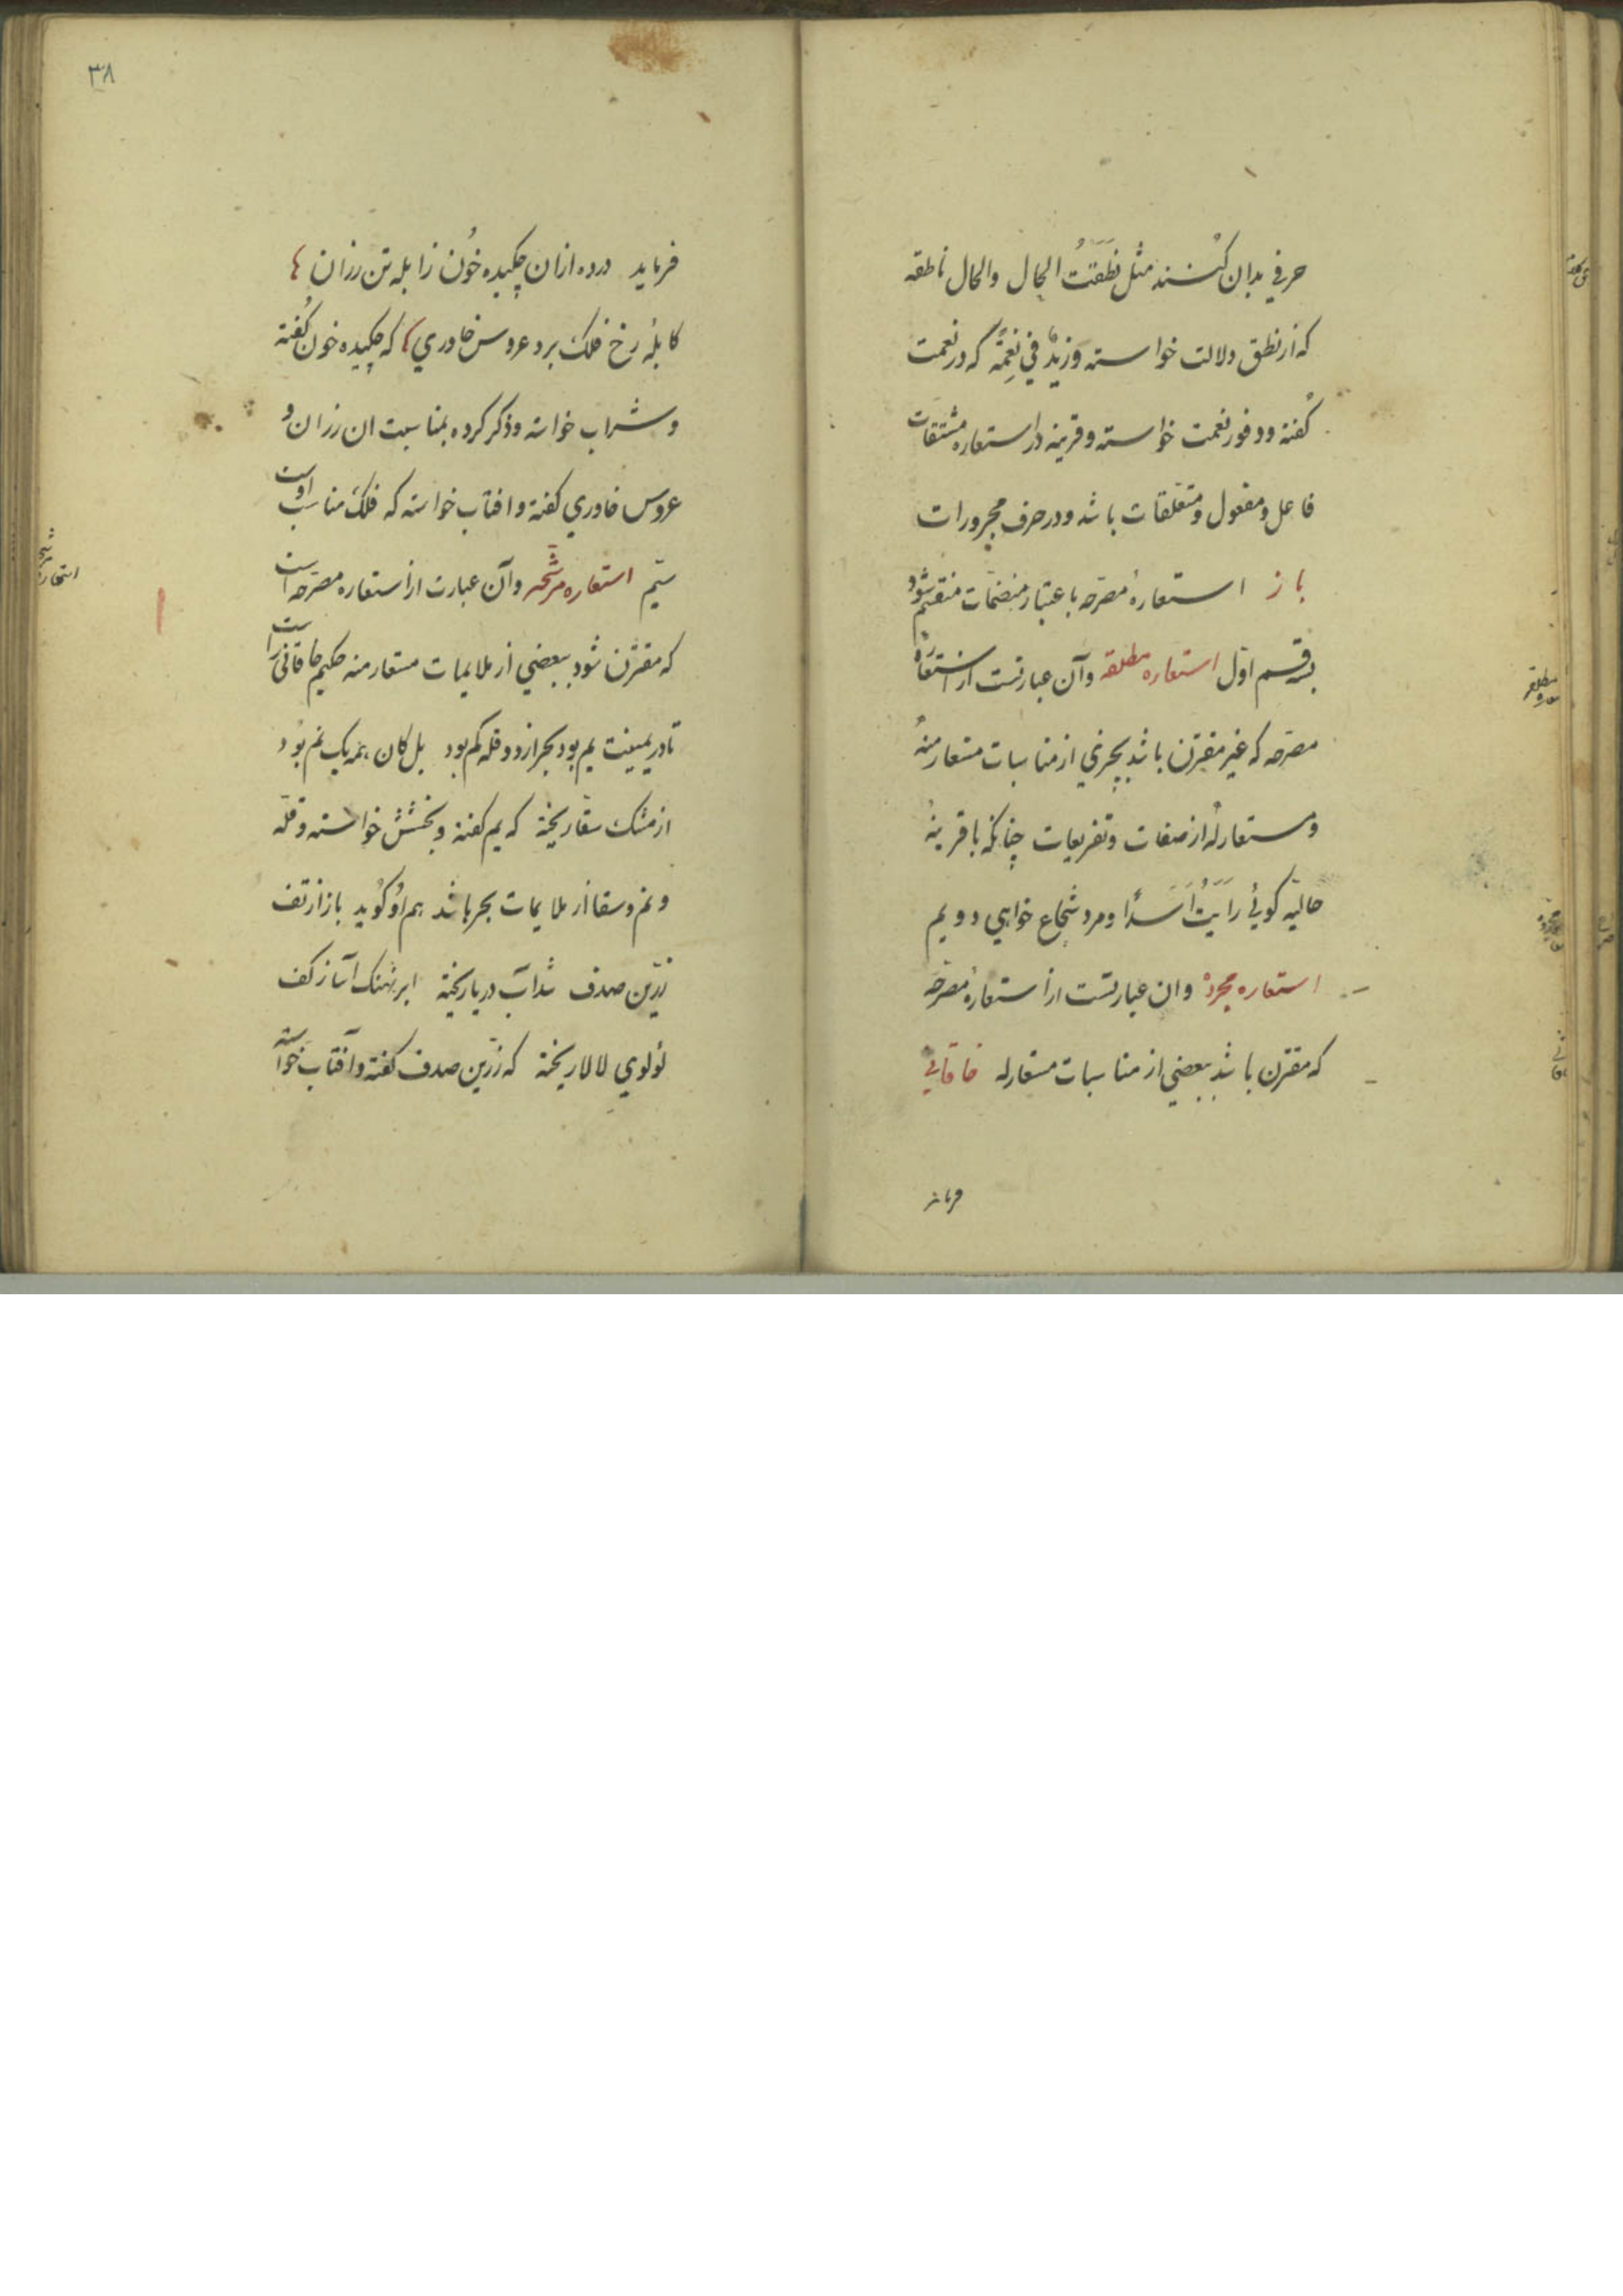 حرفي بدان كنند مثل نَطَقَتُ الحال والحال ناطقه
كه از نطق دلالت خواسته و زيدٌ في نِعمةٍ كه در نعمت
كفته ووفور نعمت خواسته وقرينه در استعاره مشتقات
فاعل ومفعول ومتعلقات باشد ودر حرف مجرورات
باز استعارهٔ مصرّحه باعتبار منضمّات منقسم شود
بسه قسم اوّل استعاره مطلقه وآن عبارتست از استعارهٔ
مصرّحه كه غير مقترن باشد بچيزي از مناسبات مستعار منهُ
ومستعار لهُ از صفات وتفريعات چنانكه با قرينهٔ
حاليّه كوئي رَاَيتُ اَسَداً ومرد شجاع خواهي دويم
استعاره مجردهْ وان عبارتست از استعارهٔ مصرّحه
كه مقترن باشد ببعضي از مناسبات مستعار له خاقاني
فرمايد
٣٨
فرمايد درده ازان چكيده خُون زابله تن رزان
كابلهٔ رخ فلك برد عروس خاوري كه چكيده خون كُفته
وشراب خواسته وذكر كرده بمناسبت ان رزان و
عروس خاوري كفته وافتاب خواسته كه فلك مناسب اوست
سيّم استعاره مرشّحه وآن عبارت از استعاره مصرّحه است
كه مقترن شود ببعضي از ملايمات مستعار منه حكيم خاقانی راست
تا در يمينت يم بود بحر از دو قله كم بود بل كان همه يك نم بود
از مشك سقا ريخته كه يم كفته وبخشش خواسته وقلّه
ونم وسقا از ملايمات بحر باشد هم اُو كُويد باز از تف
زرّين صدف شد آب دريا ريخته ابر نهنك آسا ز كف
لؤلوي لالا ريخته كه زرّين صدف كفته وآفتاب خواسته